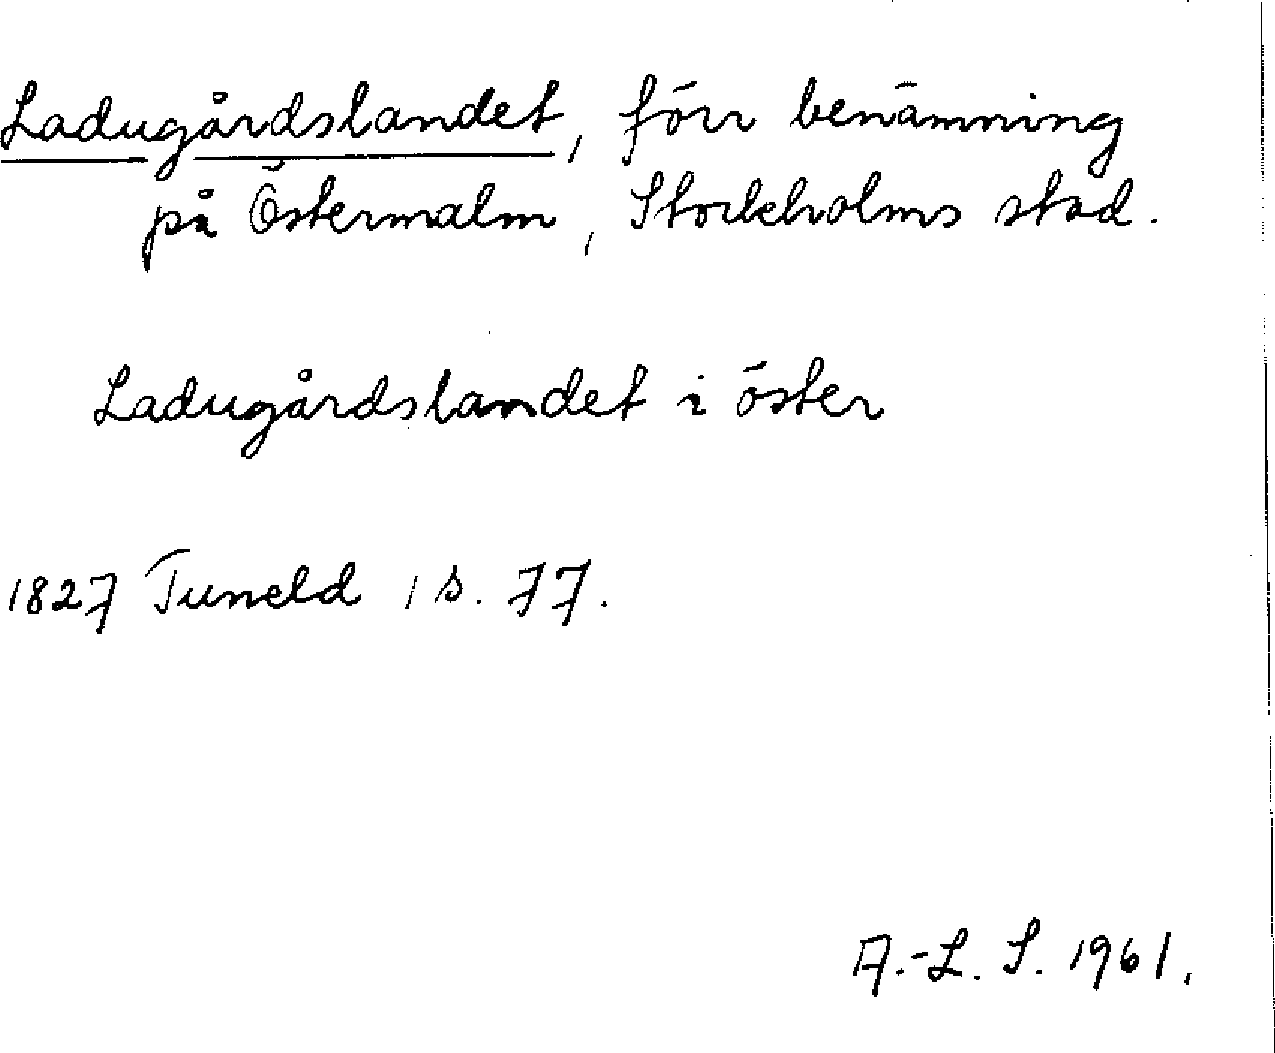 Ladugårdslandet, förr benämning
på Östermalm, Stockholms stad.
Ladugårdslandet i öster
1827 Tuneld 1 s. 77.
A.-L. S. 1961.